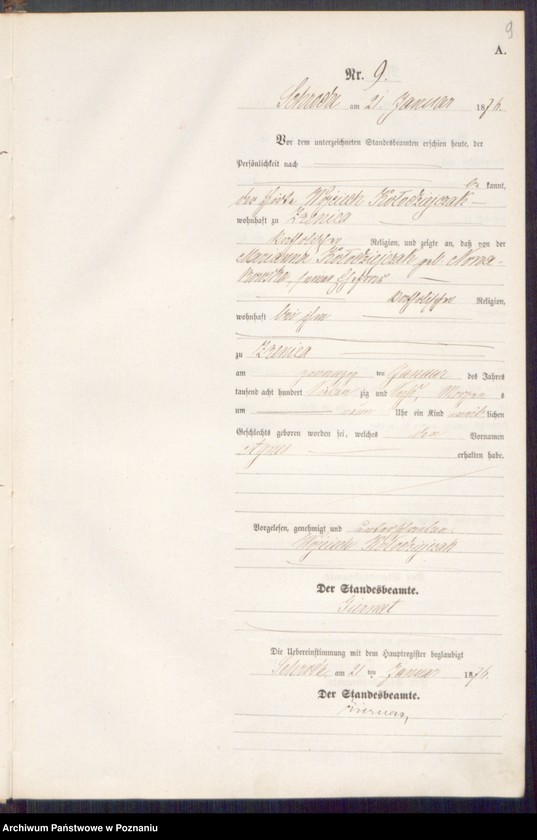 9
A.
Nr. 9.
Schroda am 21. Januar 1876.
Vor dem unterzeichneten Standesbeamten erschien heute, der
Persönlichkeit nach
be kannt,
der Wojciech Kołodziejczak
wohnhaft zu
katholischer Religion, und zeigte an, daß von der
Marianna Kołodziejczak geb. Nowa-
seiner Ehefrau
katholischer Religion,
wohnhaft bei ihm
zu
am ten Januar des Jahres
tausend acht hundert sieben zig und sechs, Morgens
um neun Uhr ein Kind weib lichen
Geschlechts geboren worden sei, welches den Vornamen
Agnes erhalten habe.
Vorgelesen, genehmigt und unterschrieben
Wojciech Kołodziejczak
Der Standesbeamte.
Die Uebereinstimmung mit dem Hauptregister beglaubigt
Schroda am 21 ten Januar 1876.
Der Standesbeamte.
Archiwum Państwowe w Poznaniu